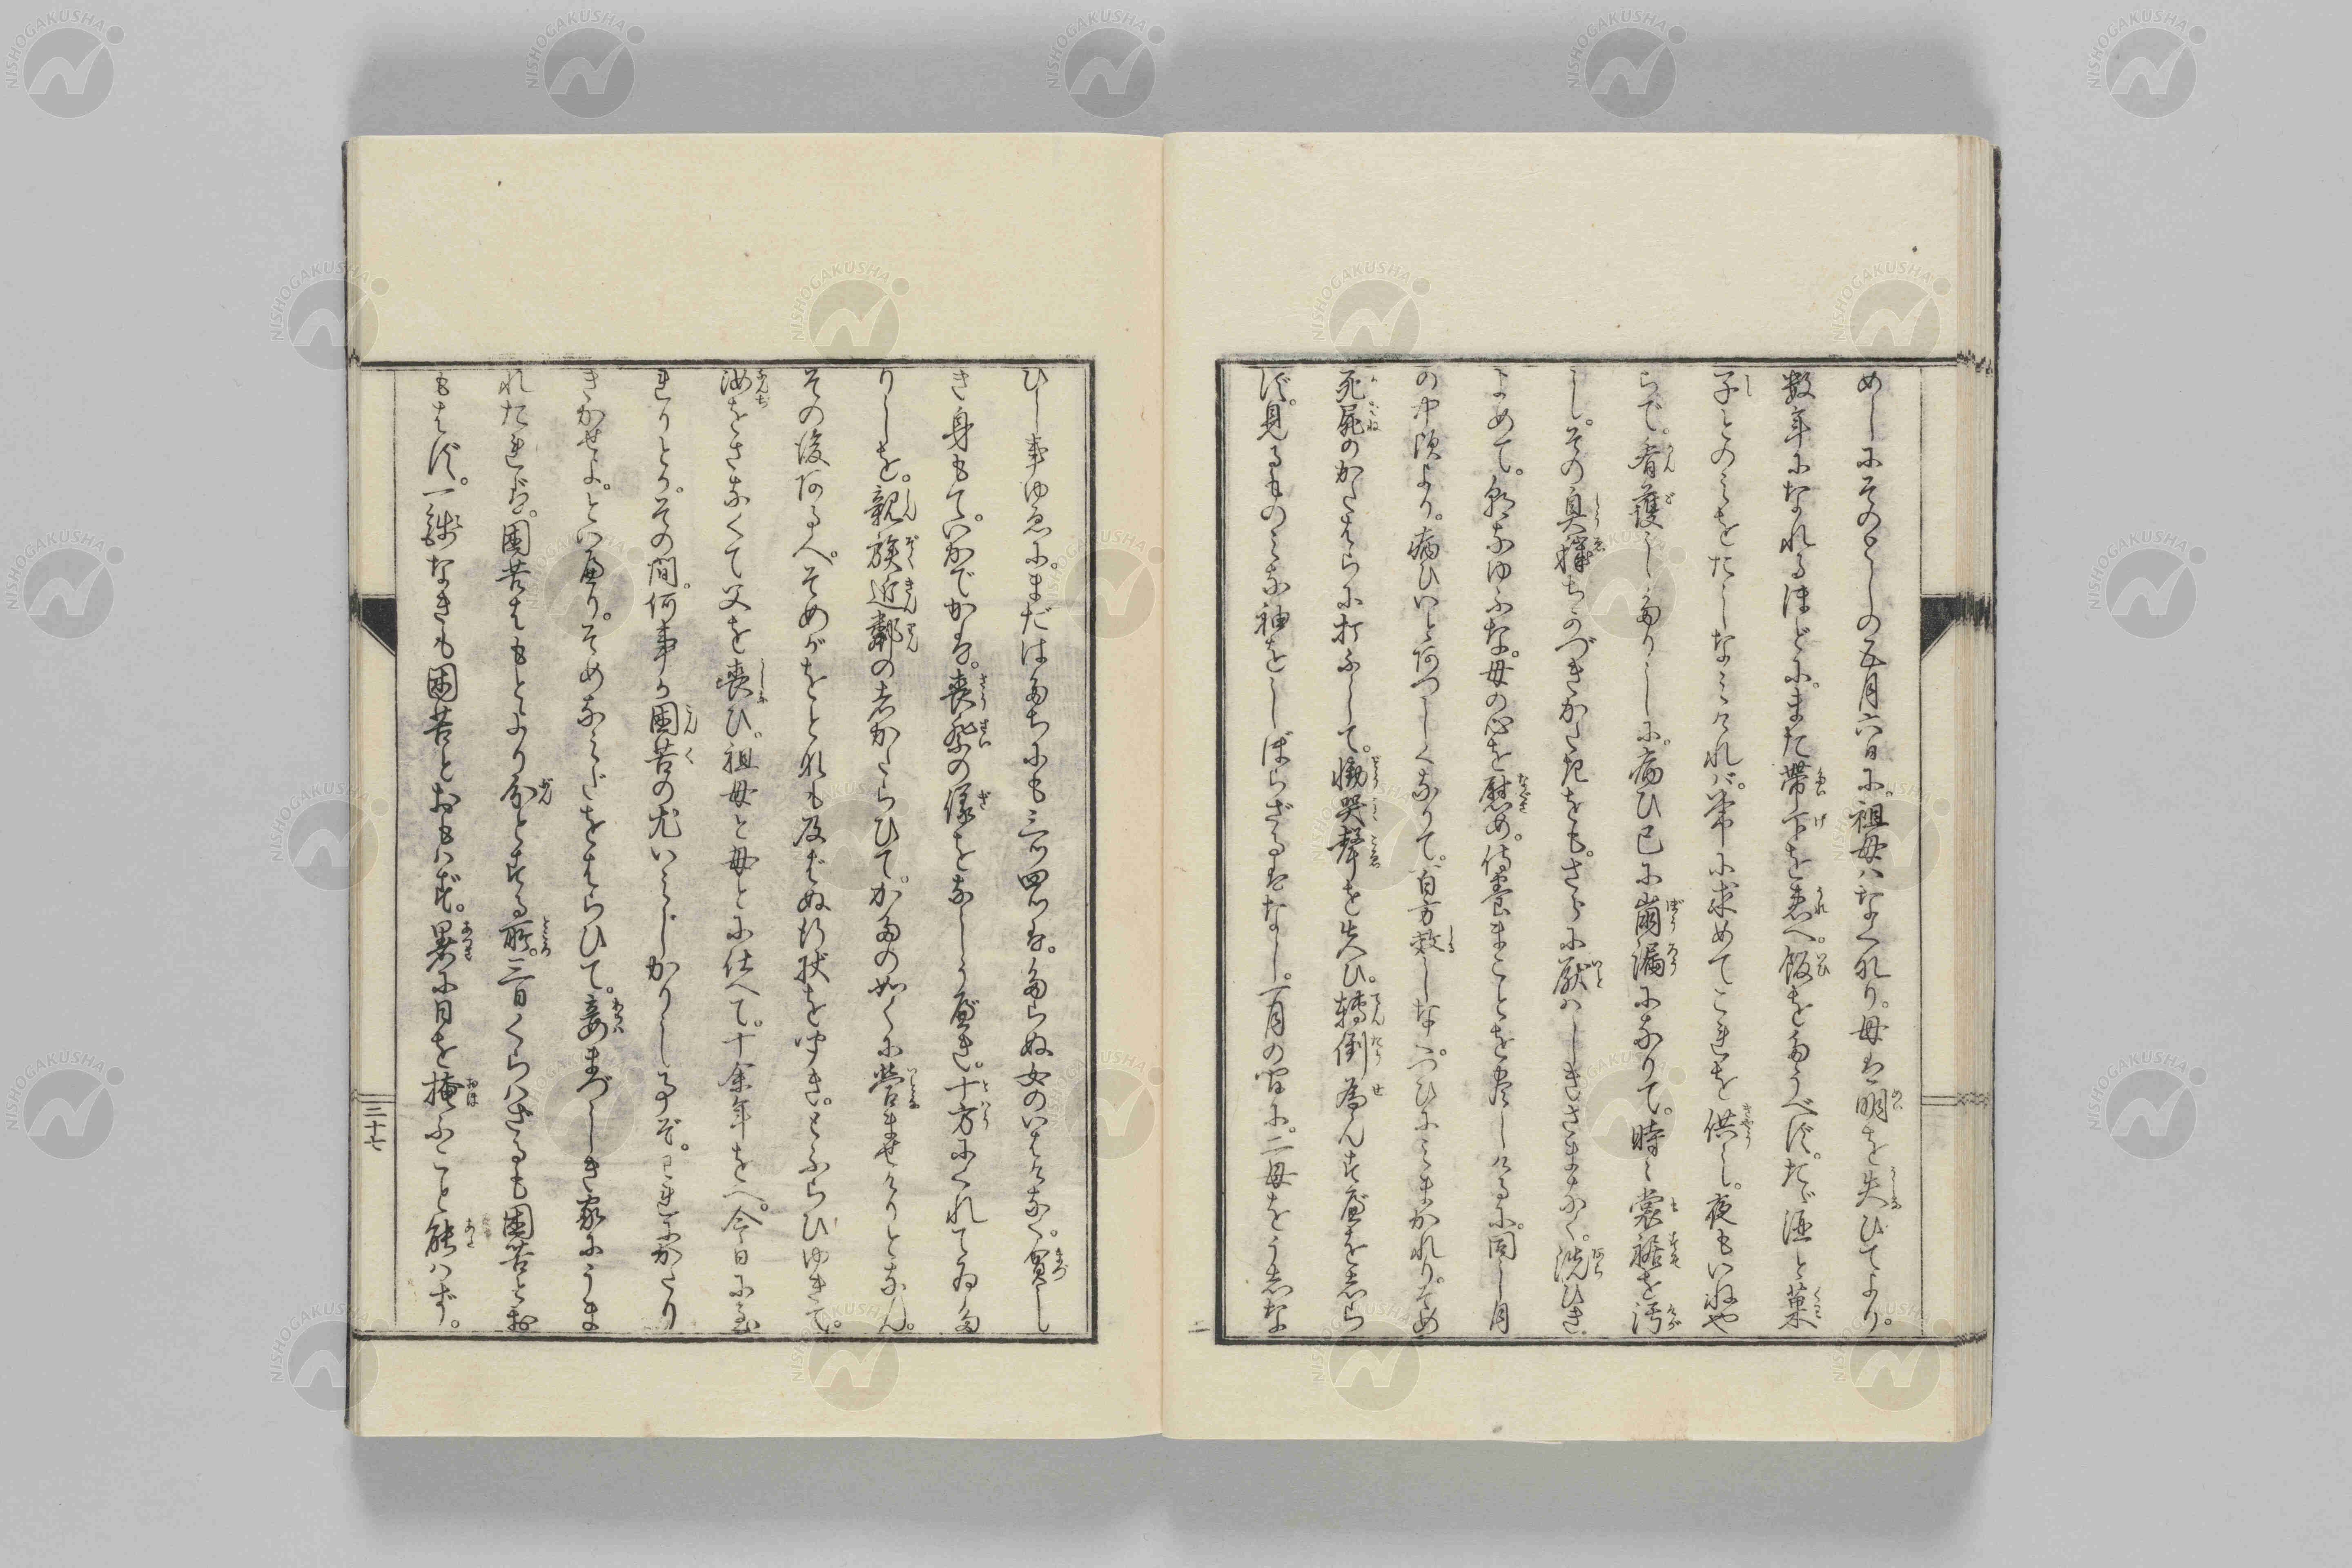 めしにそのとしの五月六日に。祖母ハなくなれり。母ハ明を失ひてより。
数年になれるほどに。また帯下を患へ。飯をたうべず。たゞ酒と菓
子とのミをたしなミけれバ。常に求めてこれを供し。夜もいねや
らで。看護したりしに。病ひ已に崩漏になりて。時々裳裾を汚
しし。その臭穢ちかづきがたきをも。さらに厭ハしきさまなく。洗ひき
よめて。朝なゆふな。母の心を慰め。侍養まことを尽しけるに。同し月
の中頃より。病ひいとあつしくなりて。百方效しなく。つひにミまかれり。そめ
死屍のかたはらに打ふして。慟哭聲を失ひ。轉倒為んすべをしら
ず。見るものミな袖をしぼらざるハなし。一月の間に。二母をうしな
ひし事ゆゑに。まだはたちにも三ツ四ツハ。たらぬ女のいはけなく。貧し
き身もて。いかでかハ。喪祭の儀をなしうべき。十方にくれてゐた
りしを。親族近鄰のものかたらひて。かたの如くに營ませけりとなん。
その後あるへ。そめがをとれも及ばぬ行状をきゝ。とふらひゆきて。
汝をさなくて父を喪ひ。祖母と母とに仕へて。十余年をへ。今日に至
れりとか。その間。何事か困苦の尤いミじかりし事ぞ。われにかたり
きかせよ。といへり。そめなミだをはらひて。妾まづしき家にうま
れたれば。困苦はもとより分とする所。三日くらハざるも困苦とお
もはず。一錢なきも困苦とおもハず。晷に日を掩ふこと能ハず。
三十七
NISHOGAKUSHA